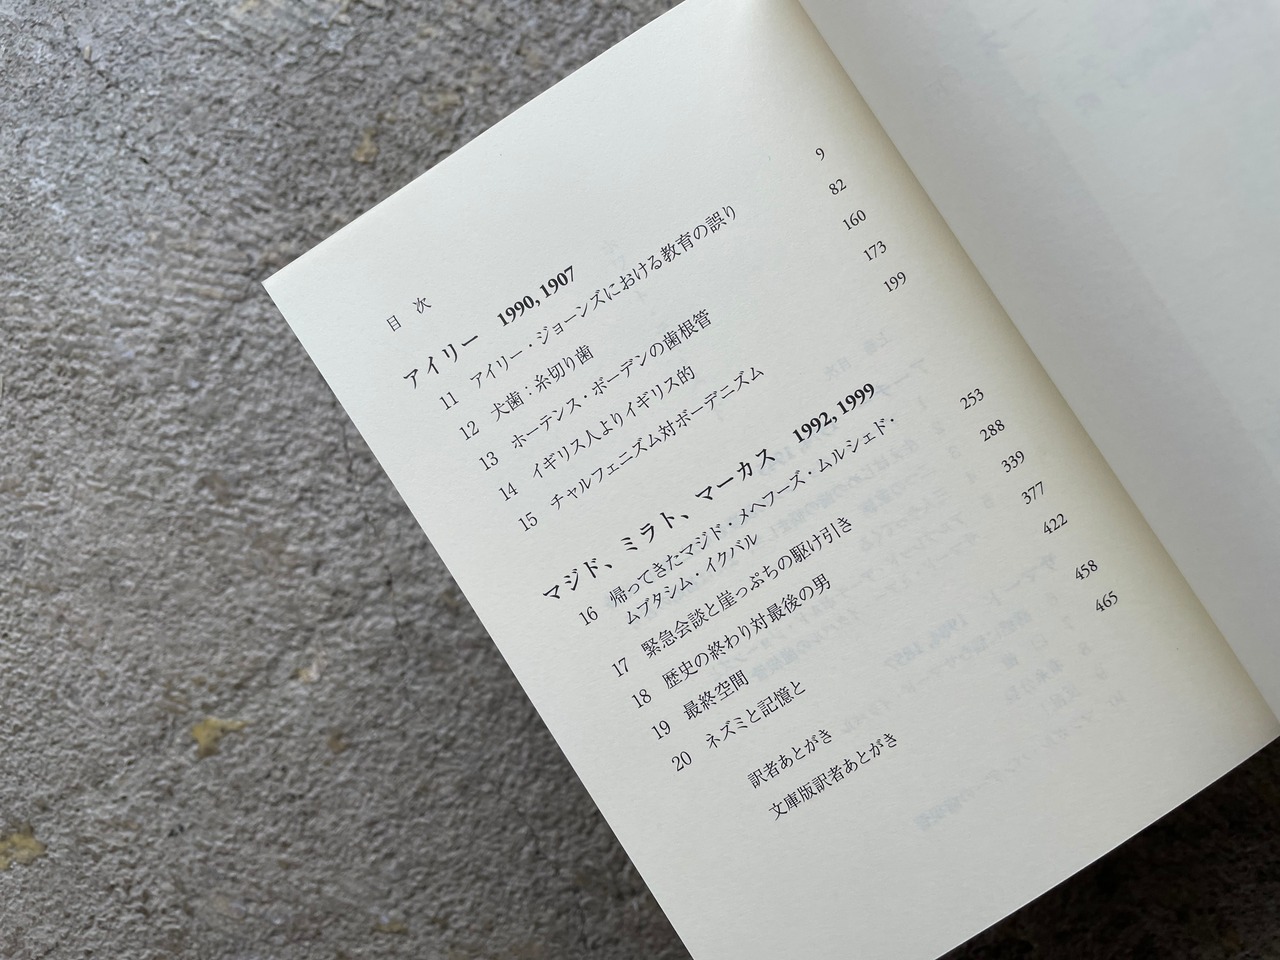 目次
アイリー 1990, 1907
11 アイリー・ジョーンズにおける教育の誤り 9
12 犬歯：糸切り歯 82
13 ホーテンス・ボーデンの歯根管 160
14 イギリス人よりイギリス的 173
15 チャルフェニズム対ボーデニズム 199
マジド、ミラト、マーカス 1992, 1999
16 帰ってきたマジド・メヘフーズ・ムルシェド・
ムブタシム・イクバル 253
17 緊急会談と崖っぷちの駆け引き 288
18 歴史の終わり対最後の男 339
19 最終空間 377
20 ネズミと記憶と 422
訳者あとがき 458
文庫版訳者あとがき 465